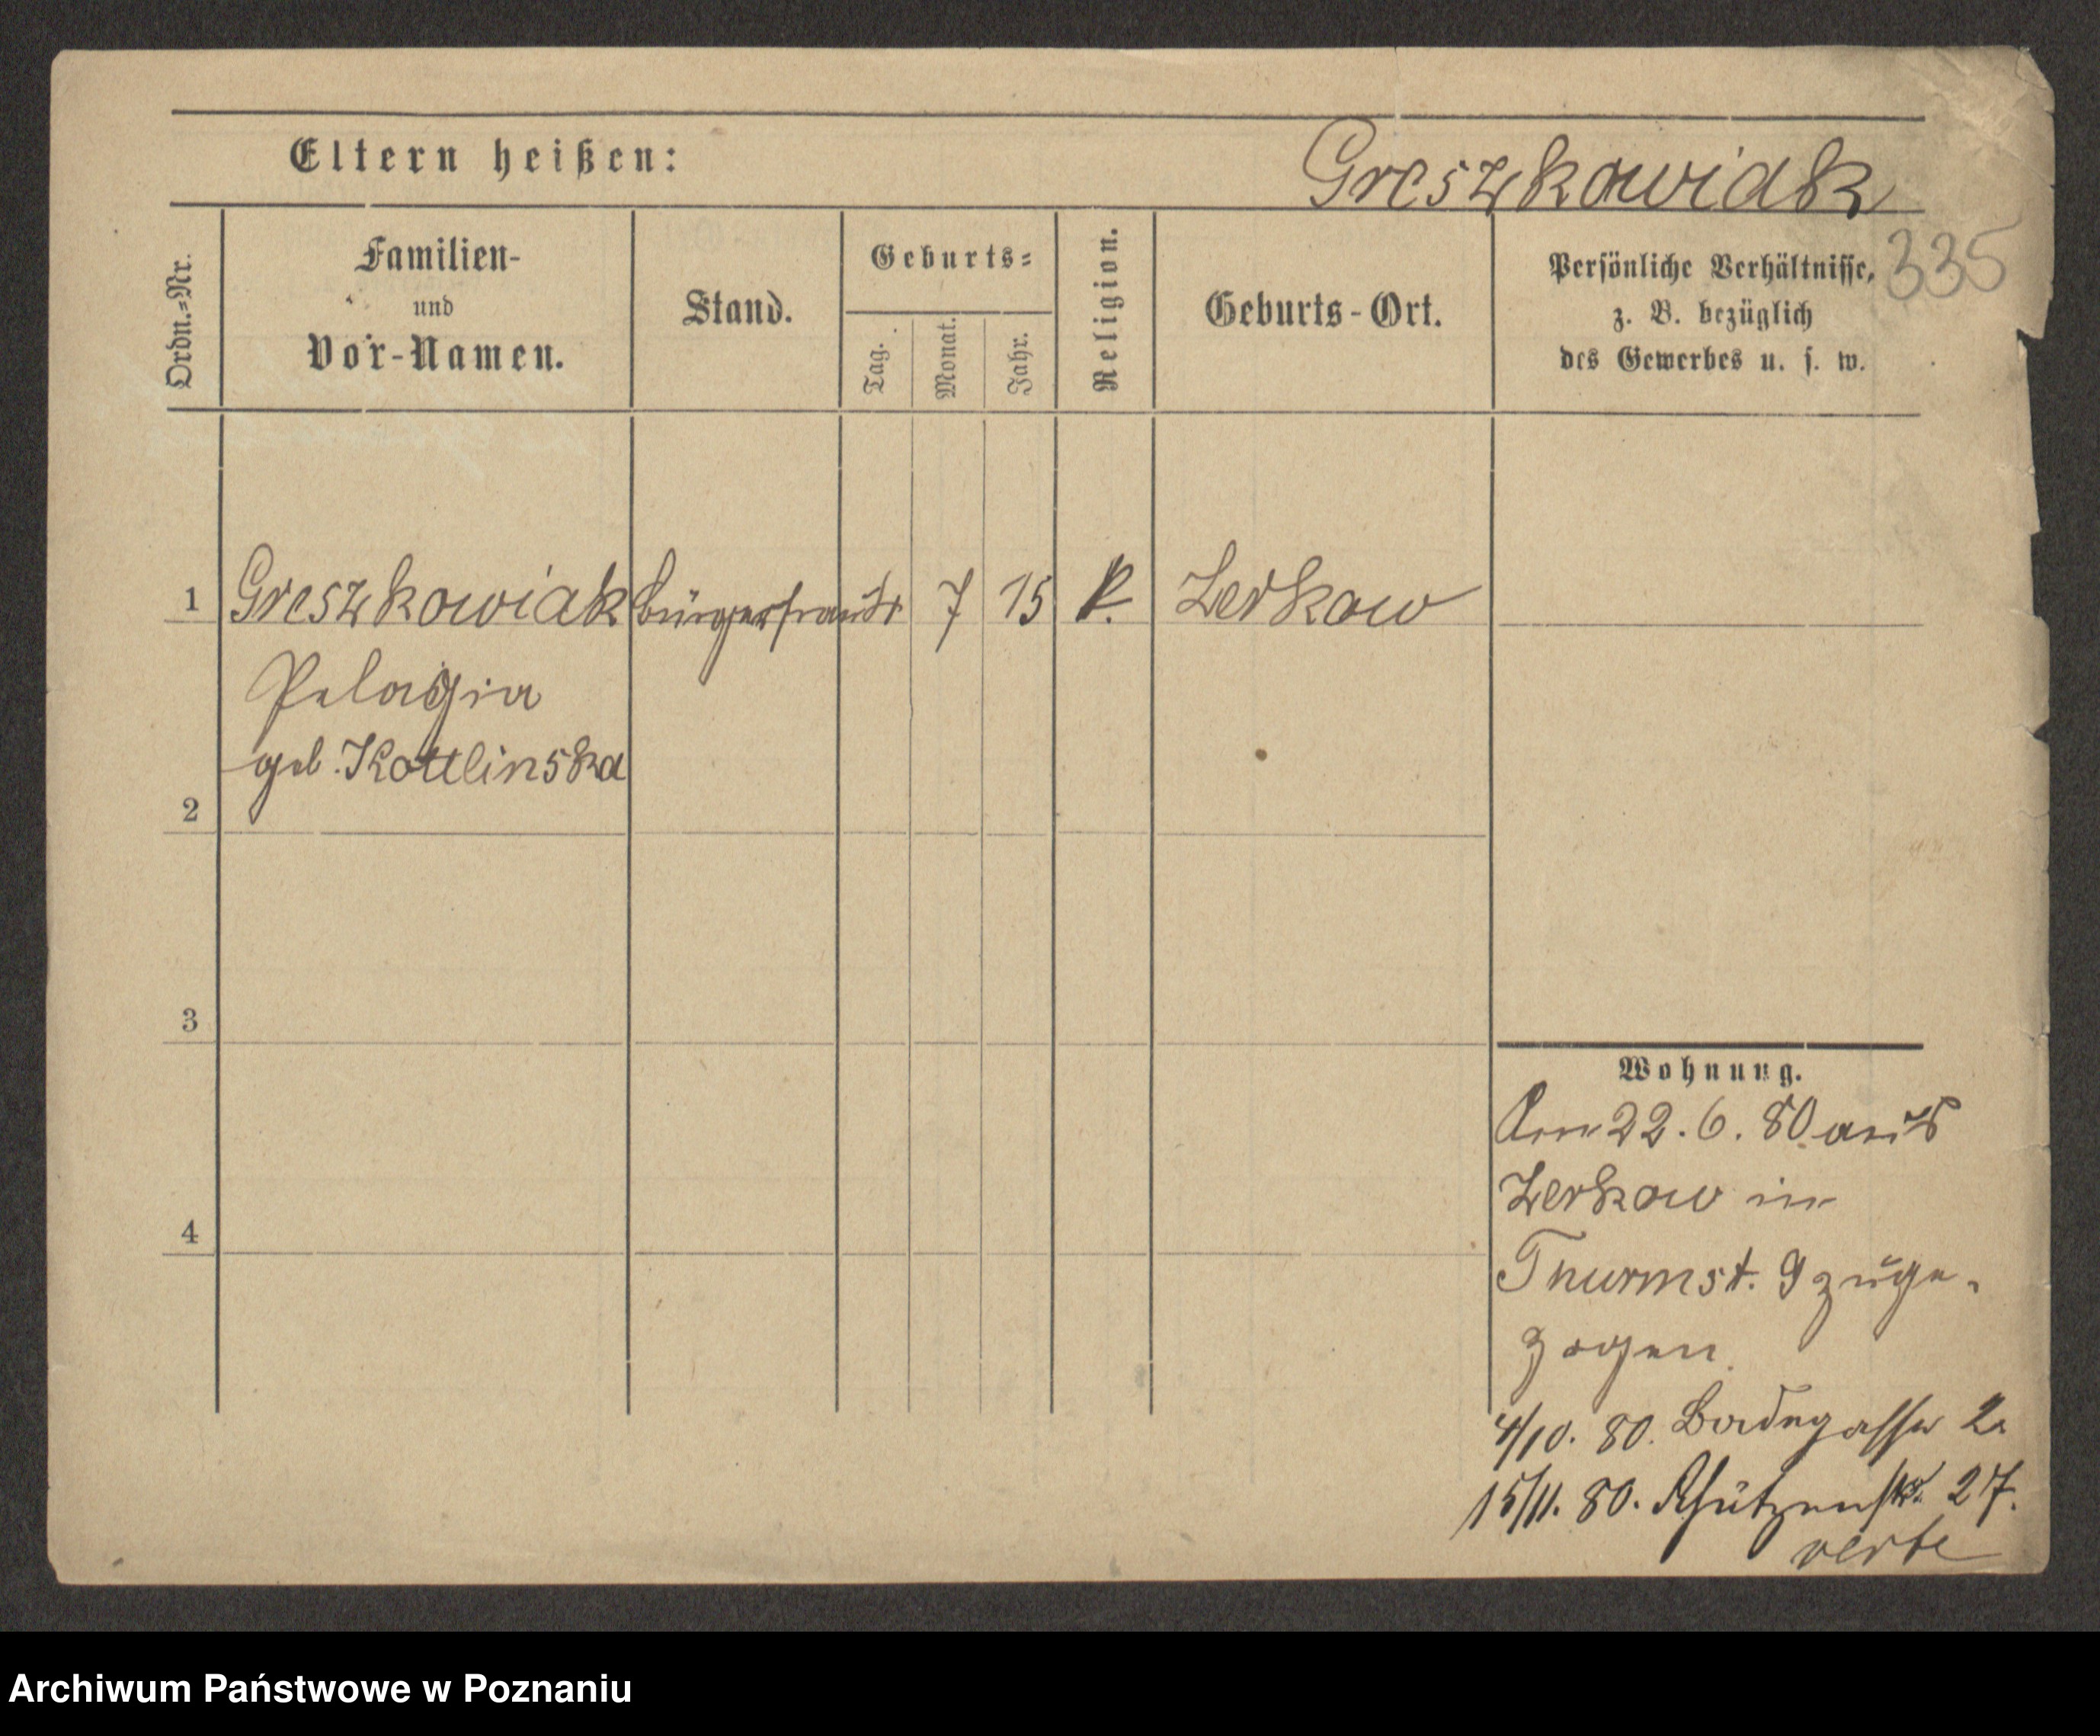 Eltern heißen:
Greszkowiak
335
Ordn.=Nr.
Familien-
und
Vor-Namen.
Stand.
Geburts=
Tag.
Monat.
Jahr.
Religion.
Geburts-Ort.
Persönliche Verhältnisse,
z. B. bezüglich
des Gewerbes u. s. w.
1 Greszkowiak Bürgerfrau 7 15 K. Zerkow
Pelagia
geb. Kottlinska
2
3
4
Wohnung.
Am 22. 6. 80 aus
Zerkow in
Thurmst. 9 zuge-
zogen.
4/10. 80. Badegasse 2
15/11. 80. Schützenstr. 27.
verte
Archiwum Państwowe w Poznaniu